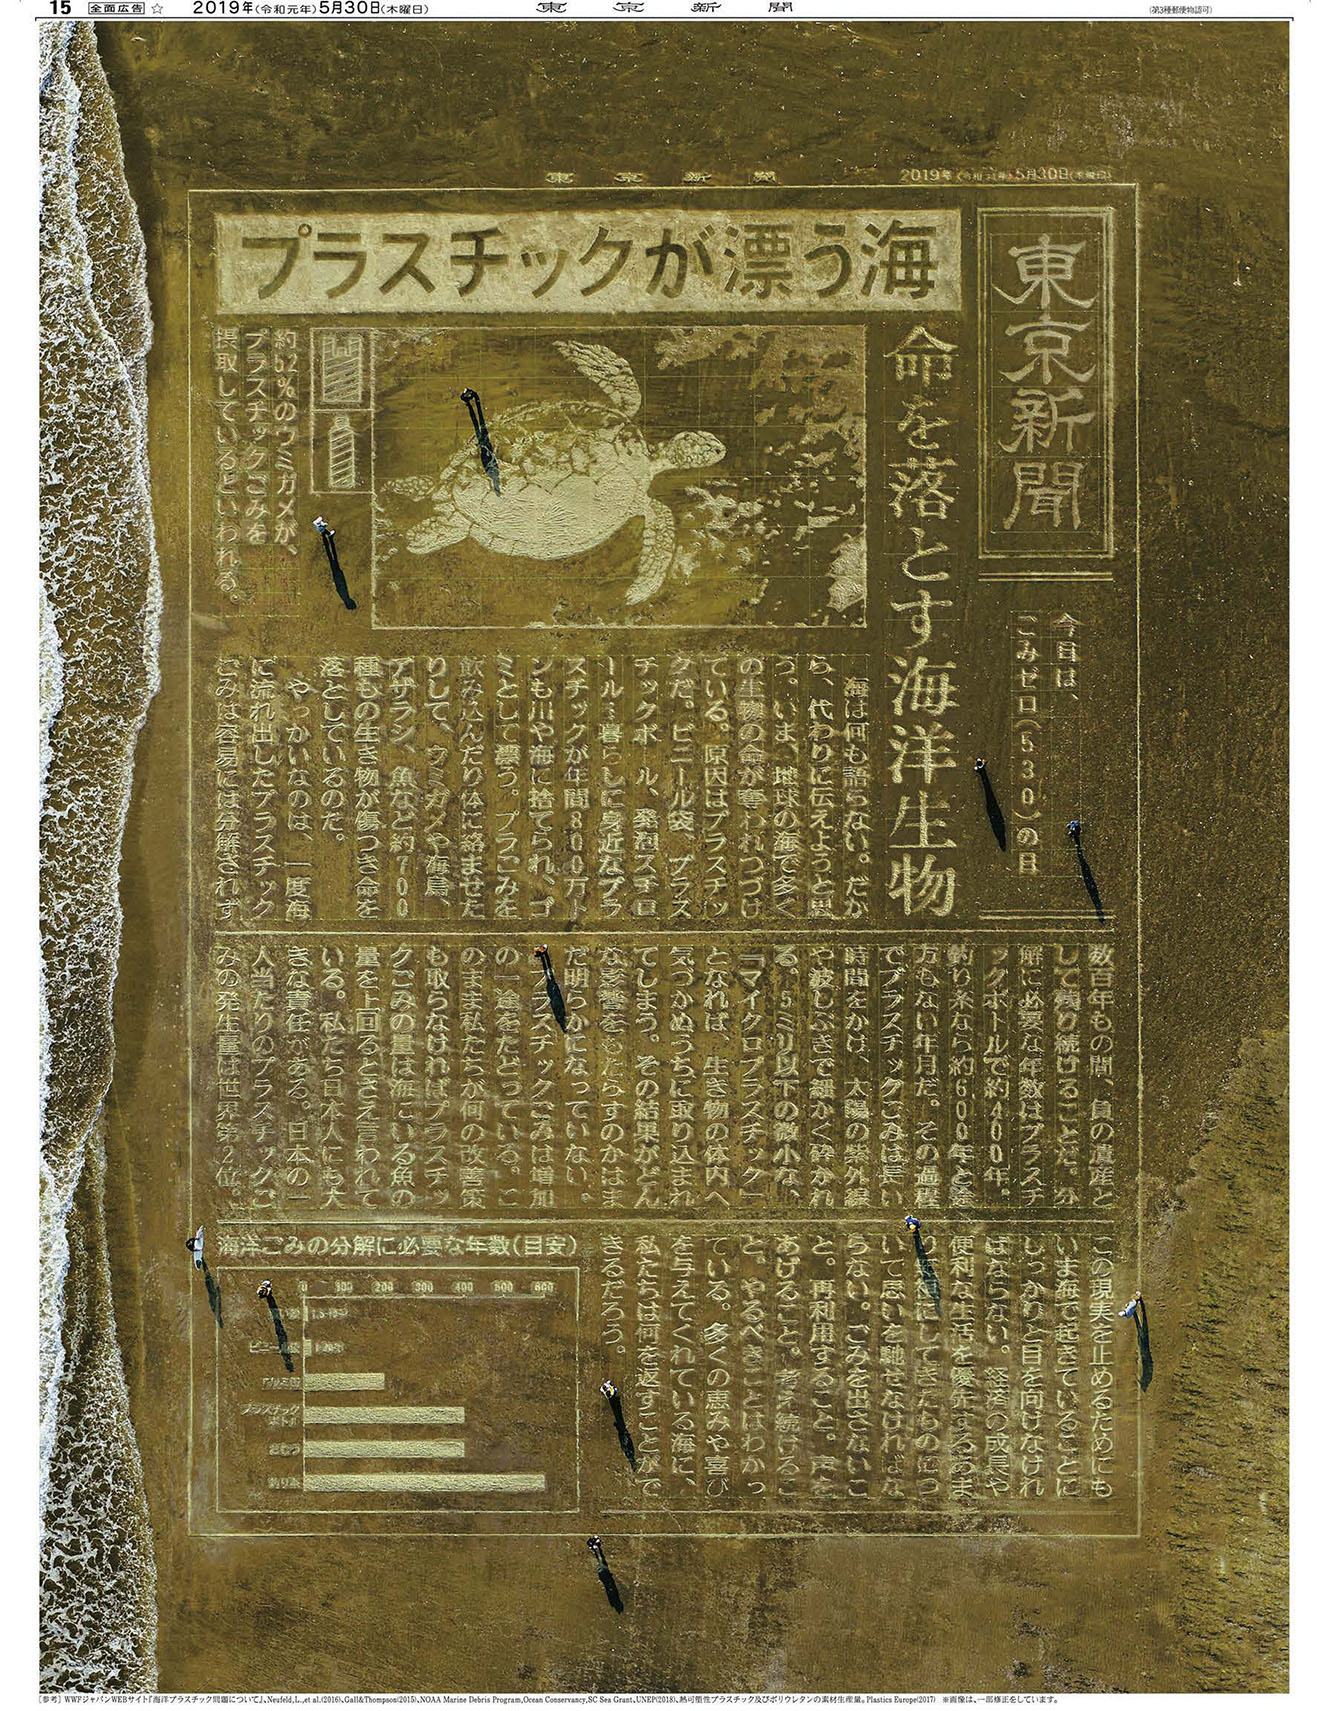 15 全面広告 ☆ 2019年(令和元年)5月30日(木曜日) 東京新聞 (第3種郵便物認可)
東京新聞 2019年(令和元年)5月30日(木曜日)
東京新聞
プラスチックが漂う海
命を落とす海洋生物
今日は、
ごみゼロ(530)の日
約52%のウミガメが、
プラスチックごみを
摂取しているといわれる。
海は何も語らない。だか
ら、代わりに伝えようと思
う。いま、地球の海で多く
の生物の命が奪われつづけ
ている。原因はプラスチッ
クだ。ビニール袋、プラス
チックボトル、発泡スチロ
ール…暮らしに身近なプラ
スチックが年間800万ト
ンも川や海に捨てられ、ゴ
ミとして漂う。プラごみを
飲み込んだり体に絡ませた
りして、ウミガメや海鳥、
アザラシ、魚など約700
種もの生き物が傷つき命を
落としているのだ。
やっかいなのは、一度海
に流れ出したプラスチック
ごみは容易には分解されず
数百年もの間、負の遺産と
して残り続けることだ。分
解に必要な年数はプラスチ
ックボトルで約400年。
釣り糸なら約600年と途
方もない年月だ。その過程
でプラスチックごみは長い
時間をかけ、太陽の紫外線
や波しぶきで細かく砕かれ
る。5ミリ以下の微小な、
「マイクロプラスチック」
となれば、生き物の体内へ
気づかぬうちに取り込まれ
てしまう。その結果がどん
な影響をもたらすのかはま
だ明らかになっていない。
プラスチックごみは増加
の一途をたどっている。こ
のまま私たちが何の改善策
も取らなければプラスチッ
クごみの量は海にいる魚の
量を上回るとさえ言われて
いる。私たち日本人にも大
きな責任がある。日本の一
人当たりのプラスチックご
みの発生量は世界第2位。
この現実を止めるためにも
いま海で起きていることに
しっかりと目を向けなけれ
ばならない。経済の成長や
便利な生活を優先するあま
り犠牲にしてきたものにつ
いて思いを馳せなければな
らない。ごみを出さないこ
と。再利用すること。声を
あげること。考え続けるこ
と。やるべきことはわかっ
ている。多くの恵みや喜び
を与えてくれている海に、
私たちは何を返すことがで
きるだろう。
海洋ごみの分解に必要な年数(目安)
0 100 200 300 400 500 600
プラスチック
ボトル
おむつ
釣り糸
[参考] WWFジャパンWEBサイト『海洋プラスチック問題について』、Neufeld,L.,et al.(2016)、Gall&Thompson(2015)、NOAA Marine Debris Program,Ocean Conservancy,SC Sea Grant、UNEP(2018)、熱可塑性プラスチック及びポリウレタンの素材生産量。Plastics Europe(2017) ※画像は、一部修正をしています。